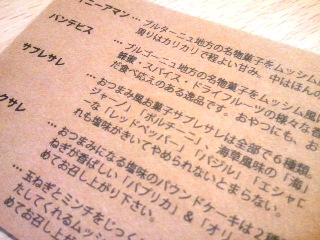 ニーアマン … ブルターニュ地方の名物菓子をムッシム風
周りはカリカリで程よい甘み。中はほんの
パンデピス … ブルゴーニュ地方の名物菓子をムッシム風
蜂蜜・スパイス・ドライフルーツの様々な香
だ食べ応えのある逸品です。おやつにも、お
サブレサレ … おつまみ風お菓子サブレサレは全部で6種類。
ジャーノ」「ポルチーニ」、海草風味の「海」
ーな「レッドペッパー」「バジル」「エシャロ
れも塩味がきいてやめられないとまらない。
クサレ … おつまみになる塩味のパウンドケーキは2種
ねぎが香ばしい「パプリカ」&「オリ
めてお召し上がり下さい。
… 玉ねぎとミンチをじっく
たしてくれるムッシ
めてお召し上